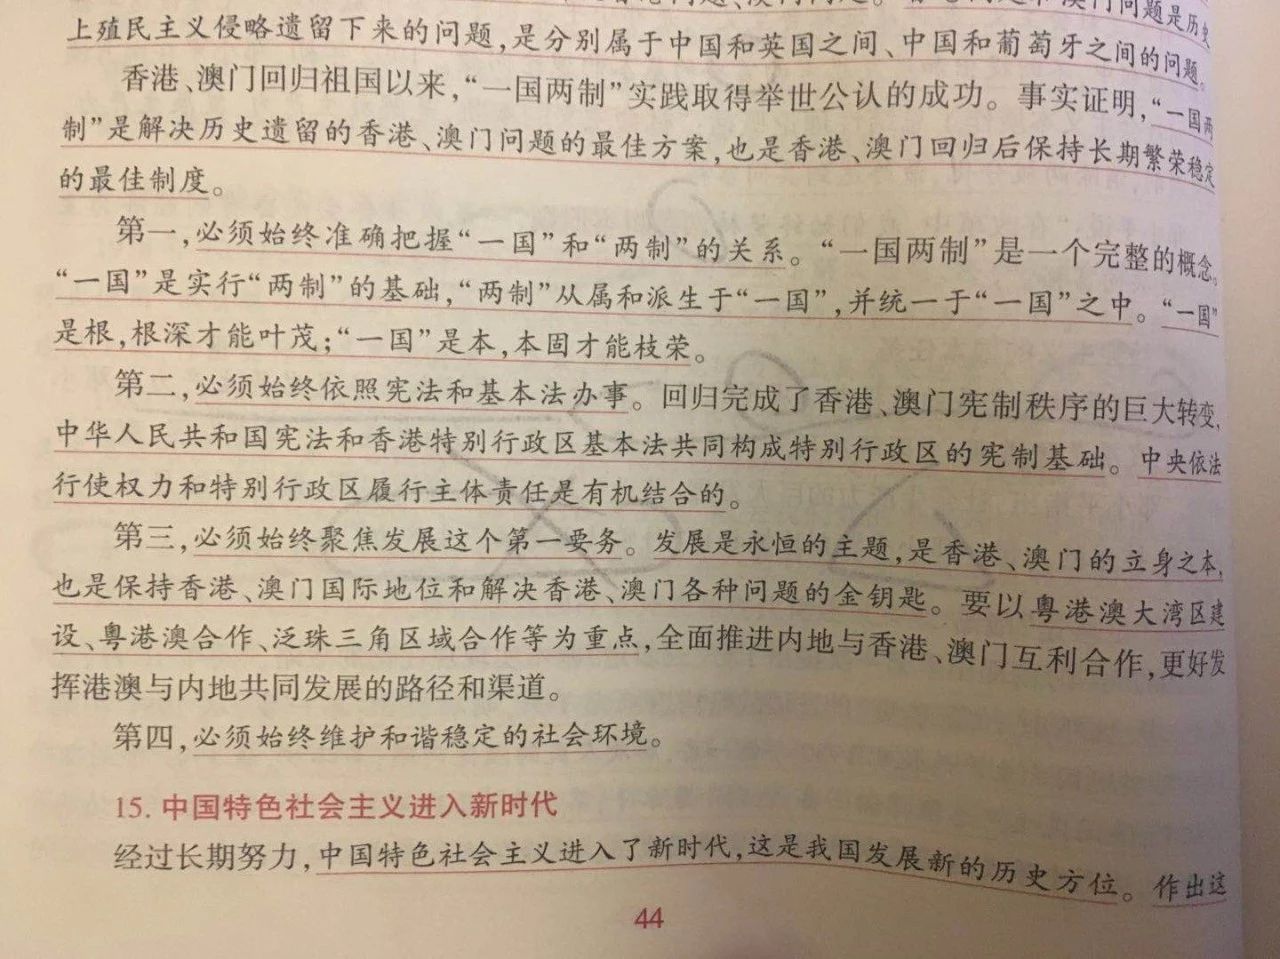 上殖民主义侵略遗留下来的问题,是分别属于中国和英国之间、中国和葡萄牙之间的问题。
香港、澳门回归祖国以来,“一国两制”实践取得举世公认的成功。事实证明,“一国两
制”是解决历史遗留的香港、澳门问题的最佳方案,也是香港、澳门回归后保持长期繁荣稳定
的最佳制度。
第一,必须始终准确把握“一国”和“两制”的关系。“一国两制”是一个完整的概念。
“一国”是实行“两制”的基础,“两制”从属和派生于“一国”,并统一于“一国”之中。“一国”
是根,根深才能叶茂;“一国”是本,本固才能枝荣。
第二,必须始终依照宪法和基本法办事。回归完成了香港、澳门宪制秩序的巨大转变,
中华人民共和国宪法和香港特别行政区基本法共同构成特别行政区的宪制基础。中央依法
行使权力和特别行政区履行主体责任是有机结合的。
第三,必须始终聚焦发展这个第一要务。发展是永恒的主题,是香港、澳门的立身之本,
也是保持香港、澳门国际地位和解决香港、澳门各种问题的金钥匙。要以粤港澳大湾区建
设、粤港澳合作、泛珠三角区域合作等为重点,全面推进内地与香港、澳门互利合作,更好发
挥港澳与内地共同发展的路径和渠道。
第四,必须始终维护和谐稳定的社会环境。
15. 中国特色社会主义进入新时代
经过长期努力,中国特色社会主义进入了新时代,这是我国发展新的历史方位。作出这
44